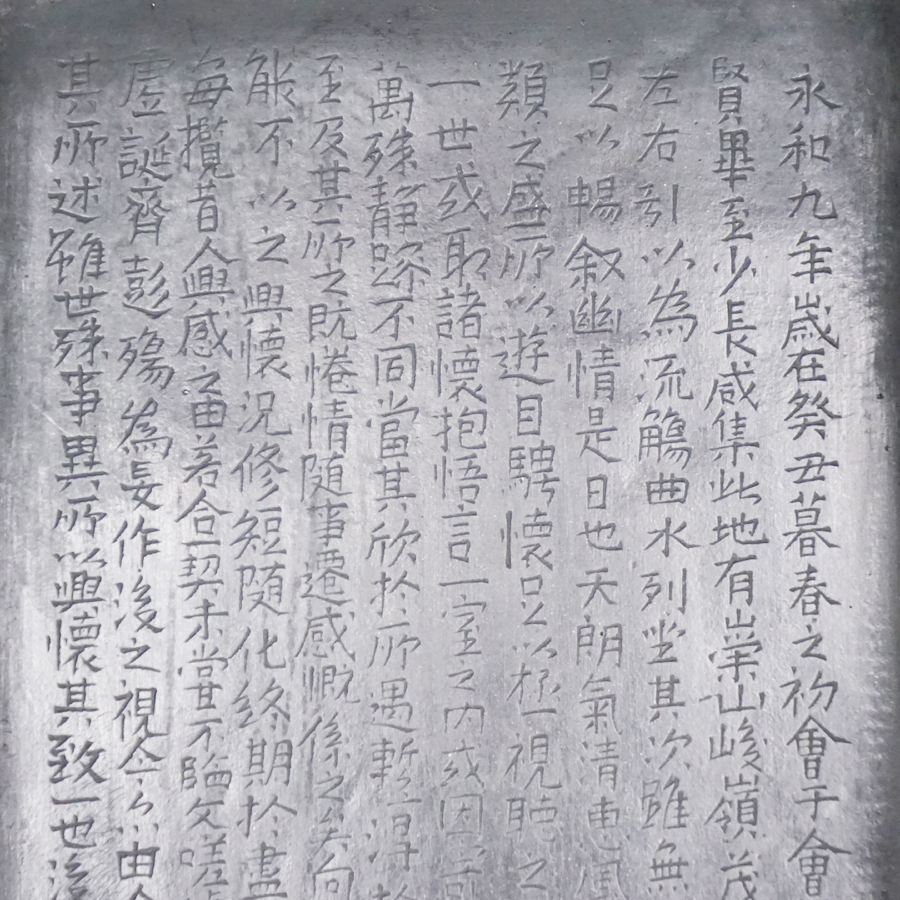 永和九年歲在癸丑暮春之初會于會
賢畢至少長咸集此地有崇山峻嶺茂
左右引以為流觴曲水列坐其次雖無
足以暢叙幽情是日也天朗氣清惠風
類之盛所以遊目騁懷足以極視聽之
一世或取諸懷抱悟言一室之內或因寄
萬殊靜躁不同當其欣於所遇暫得於
至及其所之既惓情随事遷感慨係之矣向
能不以之興懷況修短随化終期於盡
每攬昔人興感之由若合一契未嘗不臨文嗟
虛誕齊彭殤為妄作後之視今亦由今
其所述雖世殊事異所以興懷其致一也後